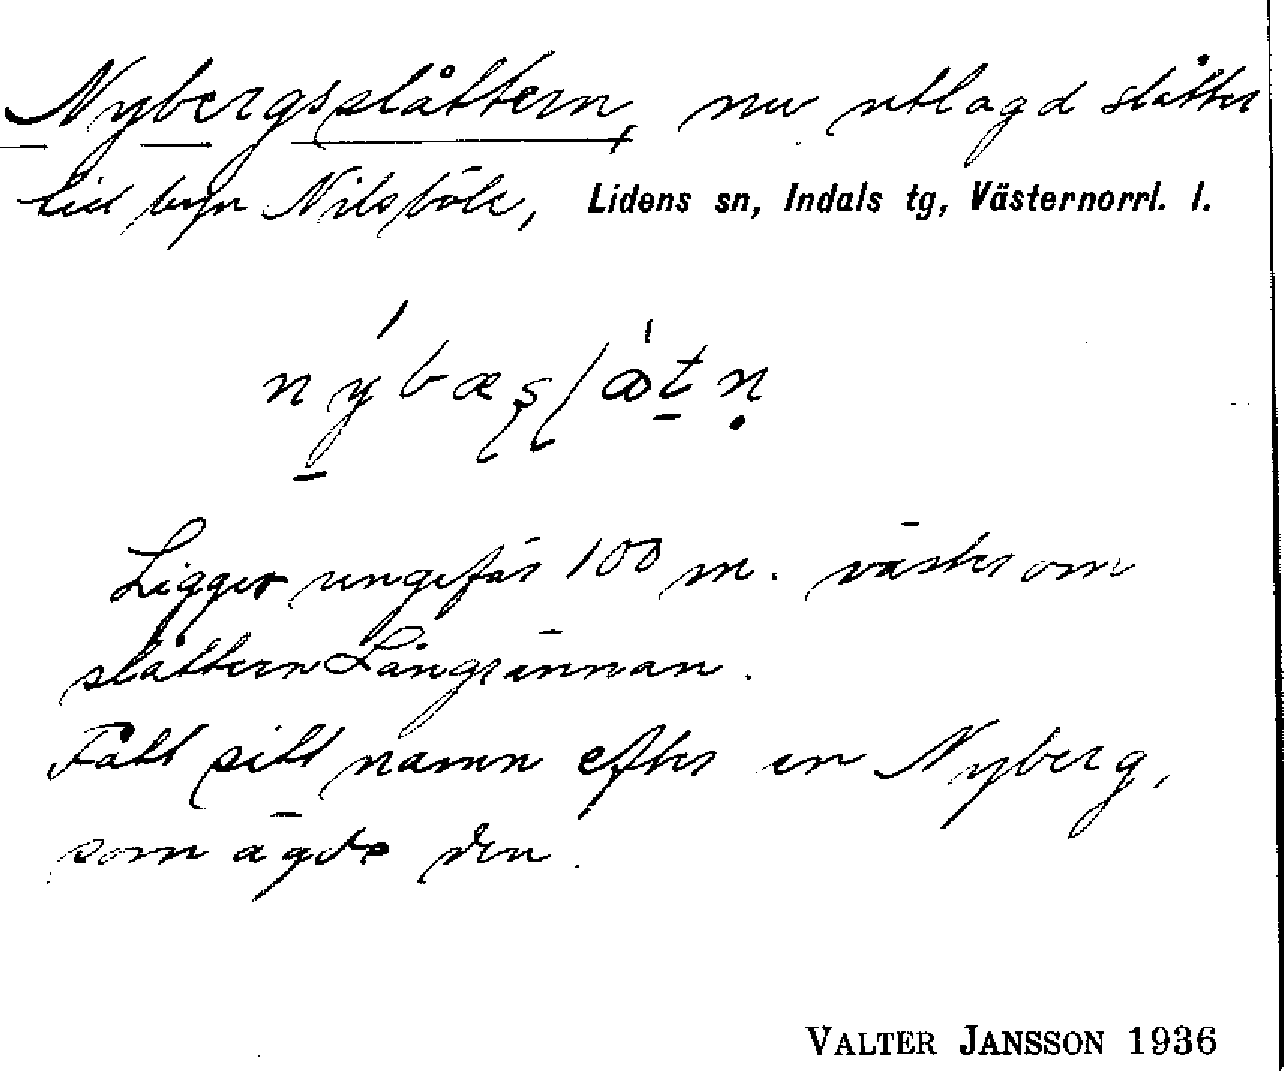 Nybergsslåttern, nu utlagd slåtter
till byn Nilsböle, Lidens sn, Indals tg, Västernorrl. l.
Ligger ungefär 100 m. väster om
slåttern Långrännan.
Fått sitt namn efter en Nyberg,
som ägde den.
VALTER JANSSON 1936